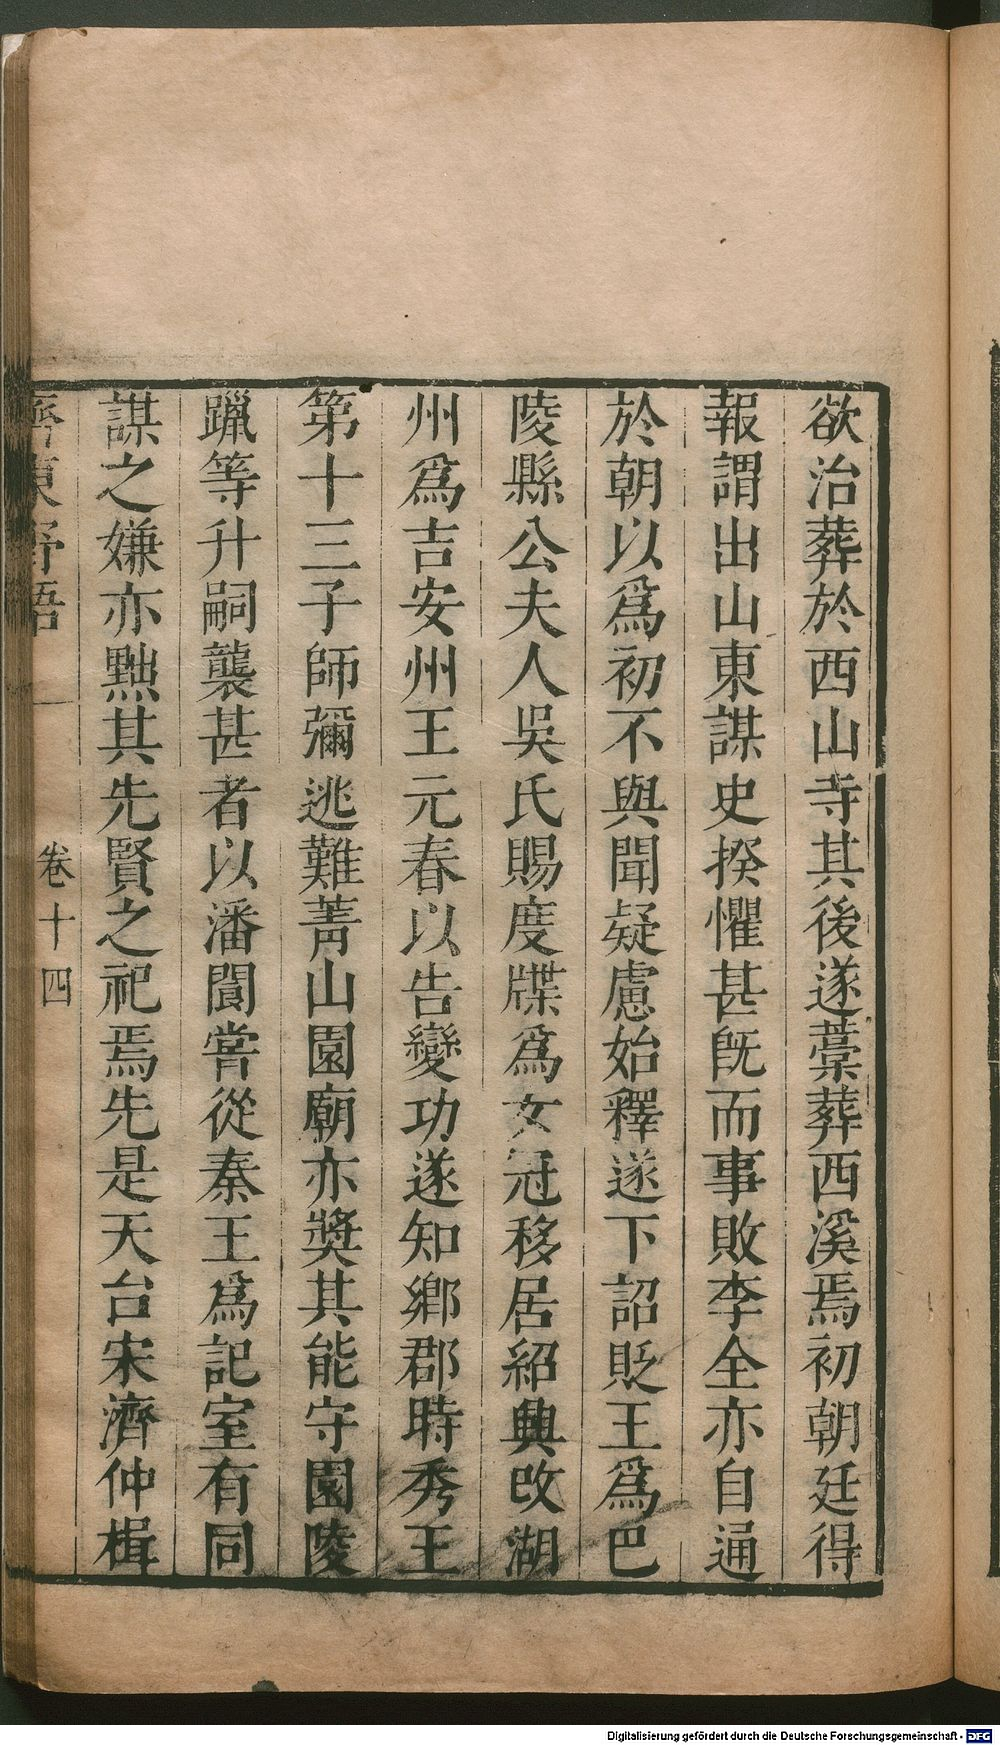 欲治葬於西山寺其後遂藁葬西溪焉初朝廷得
報謂出山東謀史揆懼甚旣而事敗李全亦自通
於朝以爲初不與聞疑慮始釋遂下詔貶王爲巴
陵縣公夫人吳氏賜度牒爲女冠移居紹興改湖
州爲吉安州王元春以告變功遂知鄉郡時秀王
第十三子師彌逃難菁山園廟亦奬其能守園陵
躐等升嗣襲甚者以潘閬嘗從秦王爲記室有同
謀之嫌亦黜其先賢之祀焉先是天台宋濟仲楫
齊東野語 卷十四
Digitalisierung gefördert durch die Deutsche Forschungsgemeinschaft - DFG